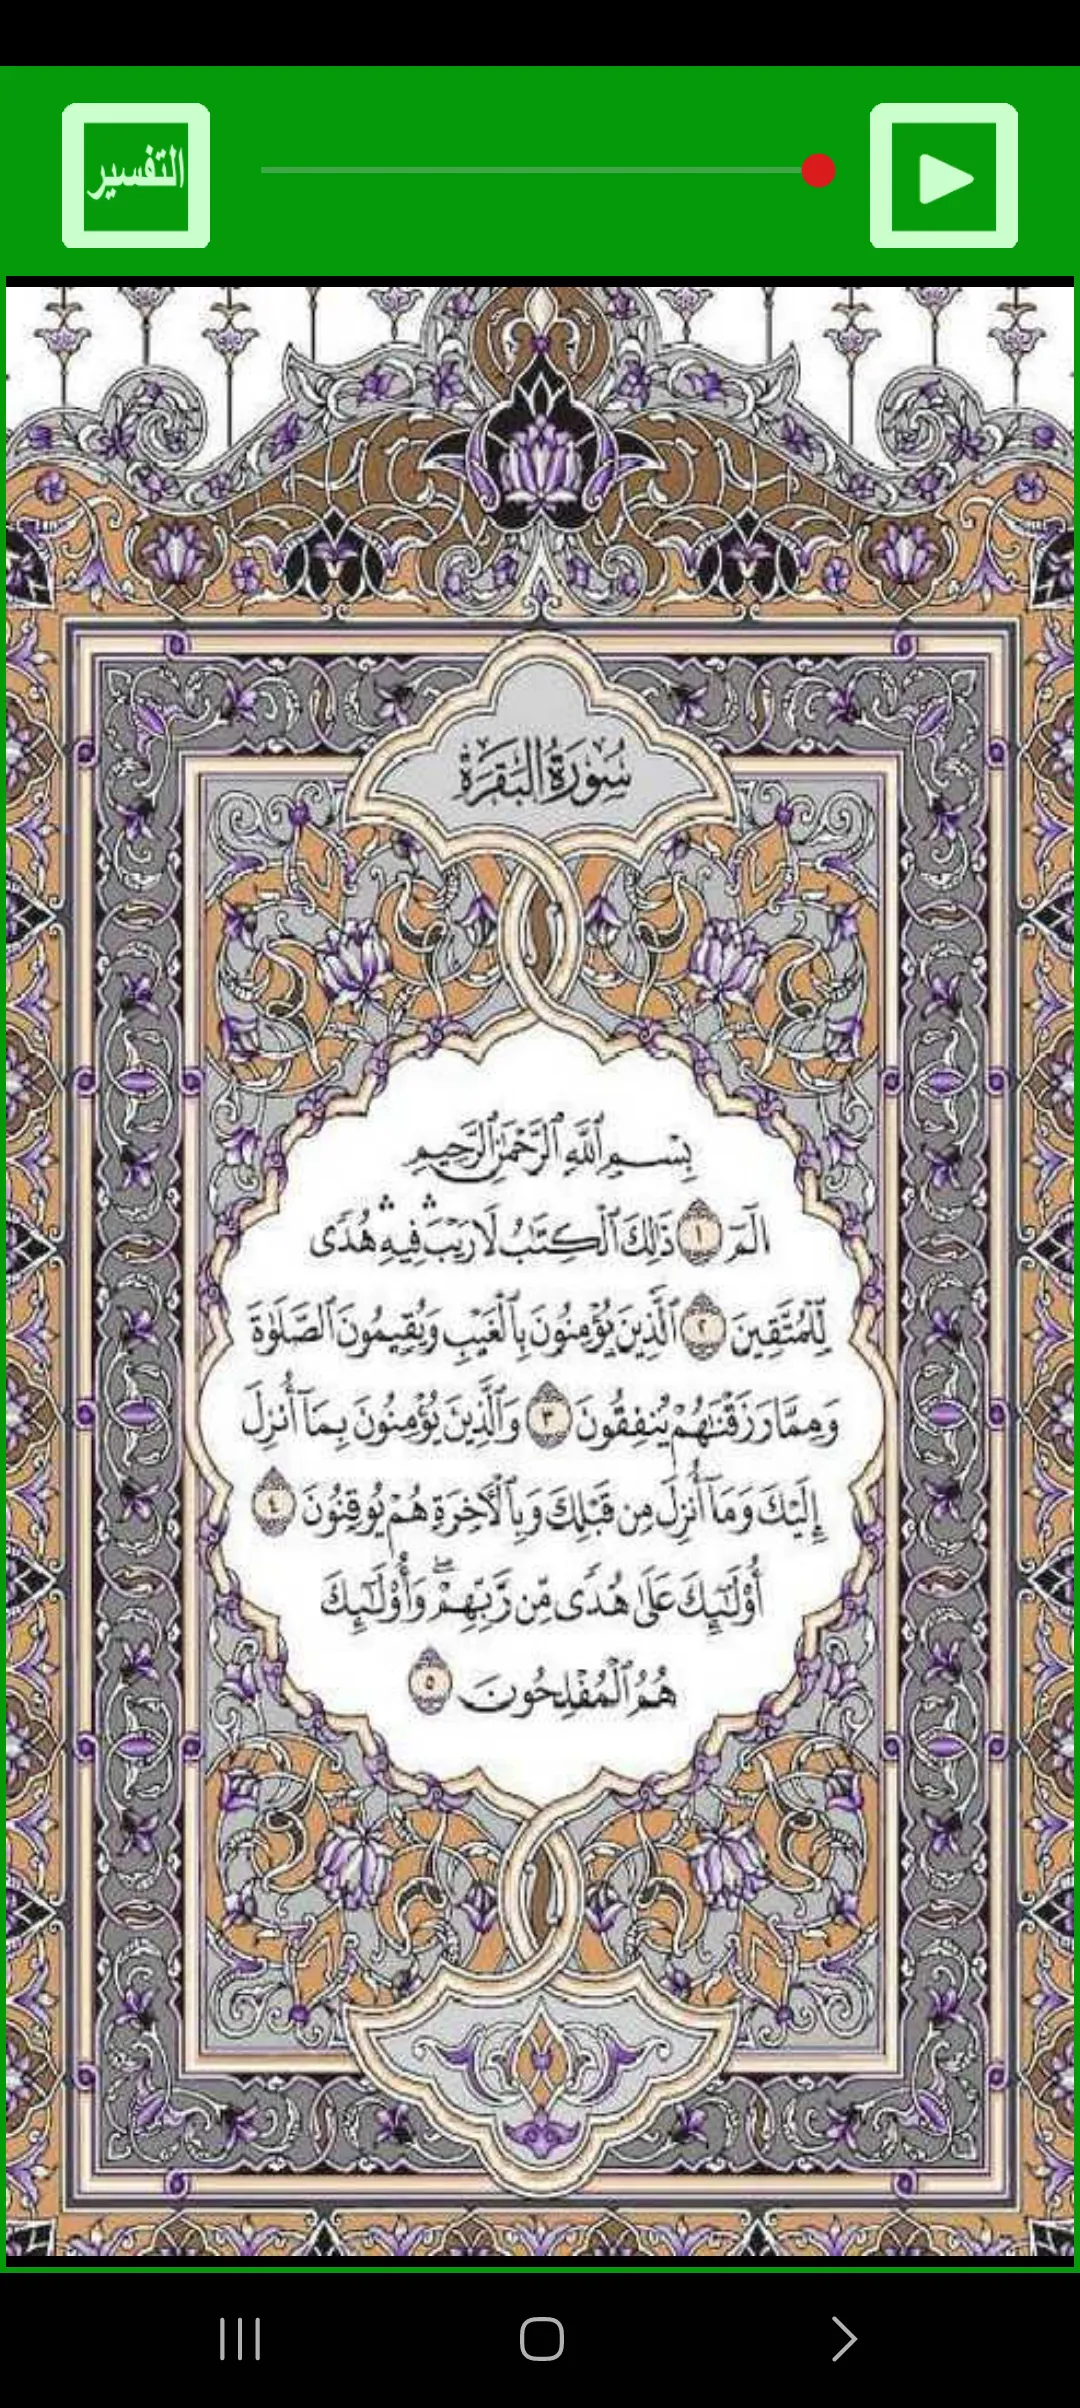 التفسير
سُورَةُ البَقَرَةِ
بِسْمِ ٱللَّهِ ٱلرَّحْمَٰنِ ٱلرَّحِيمِ
الٓمٓ ١ ذَٰلِكَ ٱلْكِتَٰبُ لَا رَيْبَ ۛ فِيهِ ۛ هُدًى
لِّلْمُتَّقِينَ ٢ ٱلَّذِينَ يُؤْمِنُونَ بِٱلْغَيْبِ وَيُقِيمُونَ ٱلصَّلَوٰةَ
وَمِمَّا رَزَقْنَٰهُمْ يُنفِقُونَ ٣ وَٱلَّذِينَ يُؤْمِنُونَ بِمَآ أُنزِلَ
إِلَيْكَ وَمَآ أُنزِلَ مِن قَبْلِكَ وَبِٱلْأَخِرَةِ هُمْ يُوقِنُونَ ٤
أُو۟لَٰٓئِكَ عَلَىٰ هُدًى مِّن رَّبِّهِمْ ۖ وَأُو۟لَٰٓئِكَ
هُمُ ٱلْمُفْلِحُونَ ٥